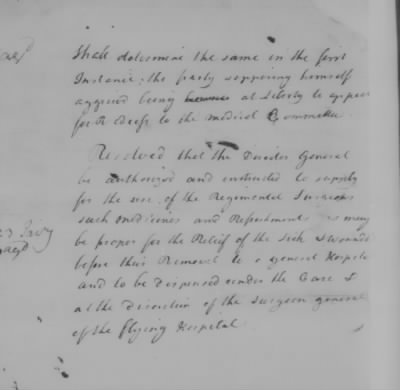 shall determine the same in the first
Instance, the party supposing himself
aggrieved being at Liberty to appeal
for Redress to the medical Committee.
Resolved that the Director General
be authorized and instructed to supply
for the use of the Regimental Surgeons
such medicines and Refreshments as may
be proper for the Relief of the Sick & wounded
before their Removal to a general Hospital
and to be dispensed under the Care &
at the Direction of the Surgeon general
of the flying Hospital